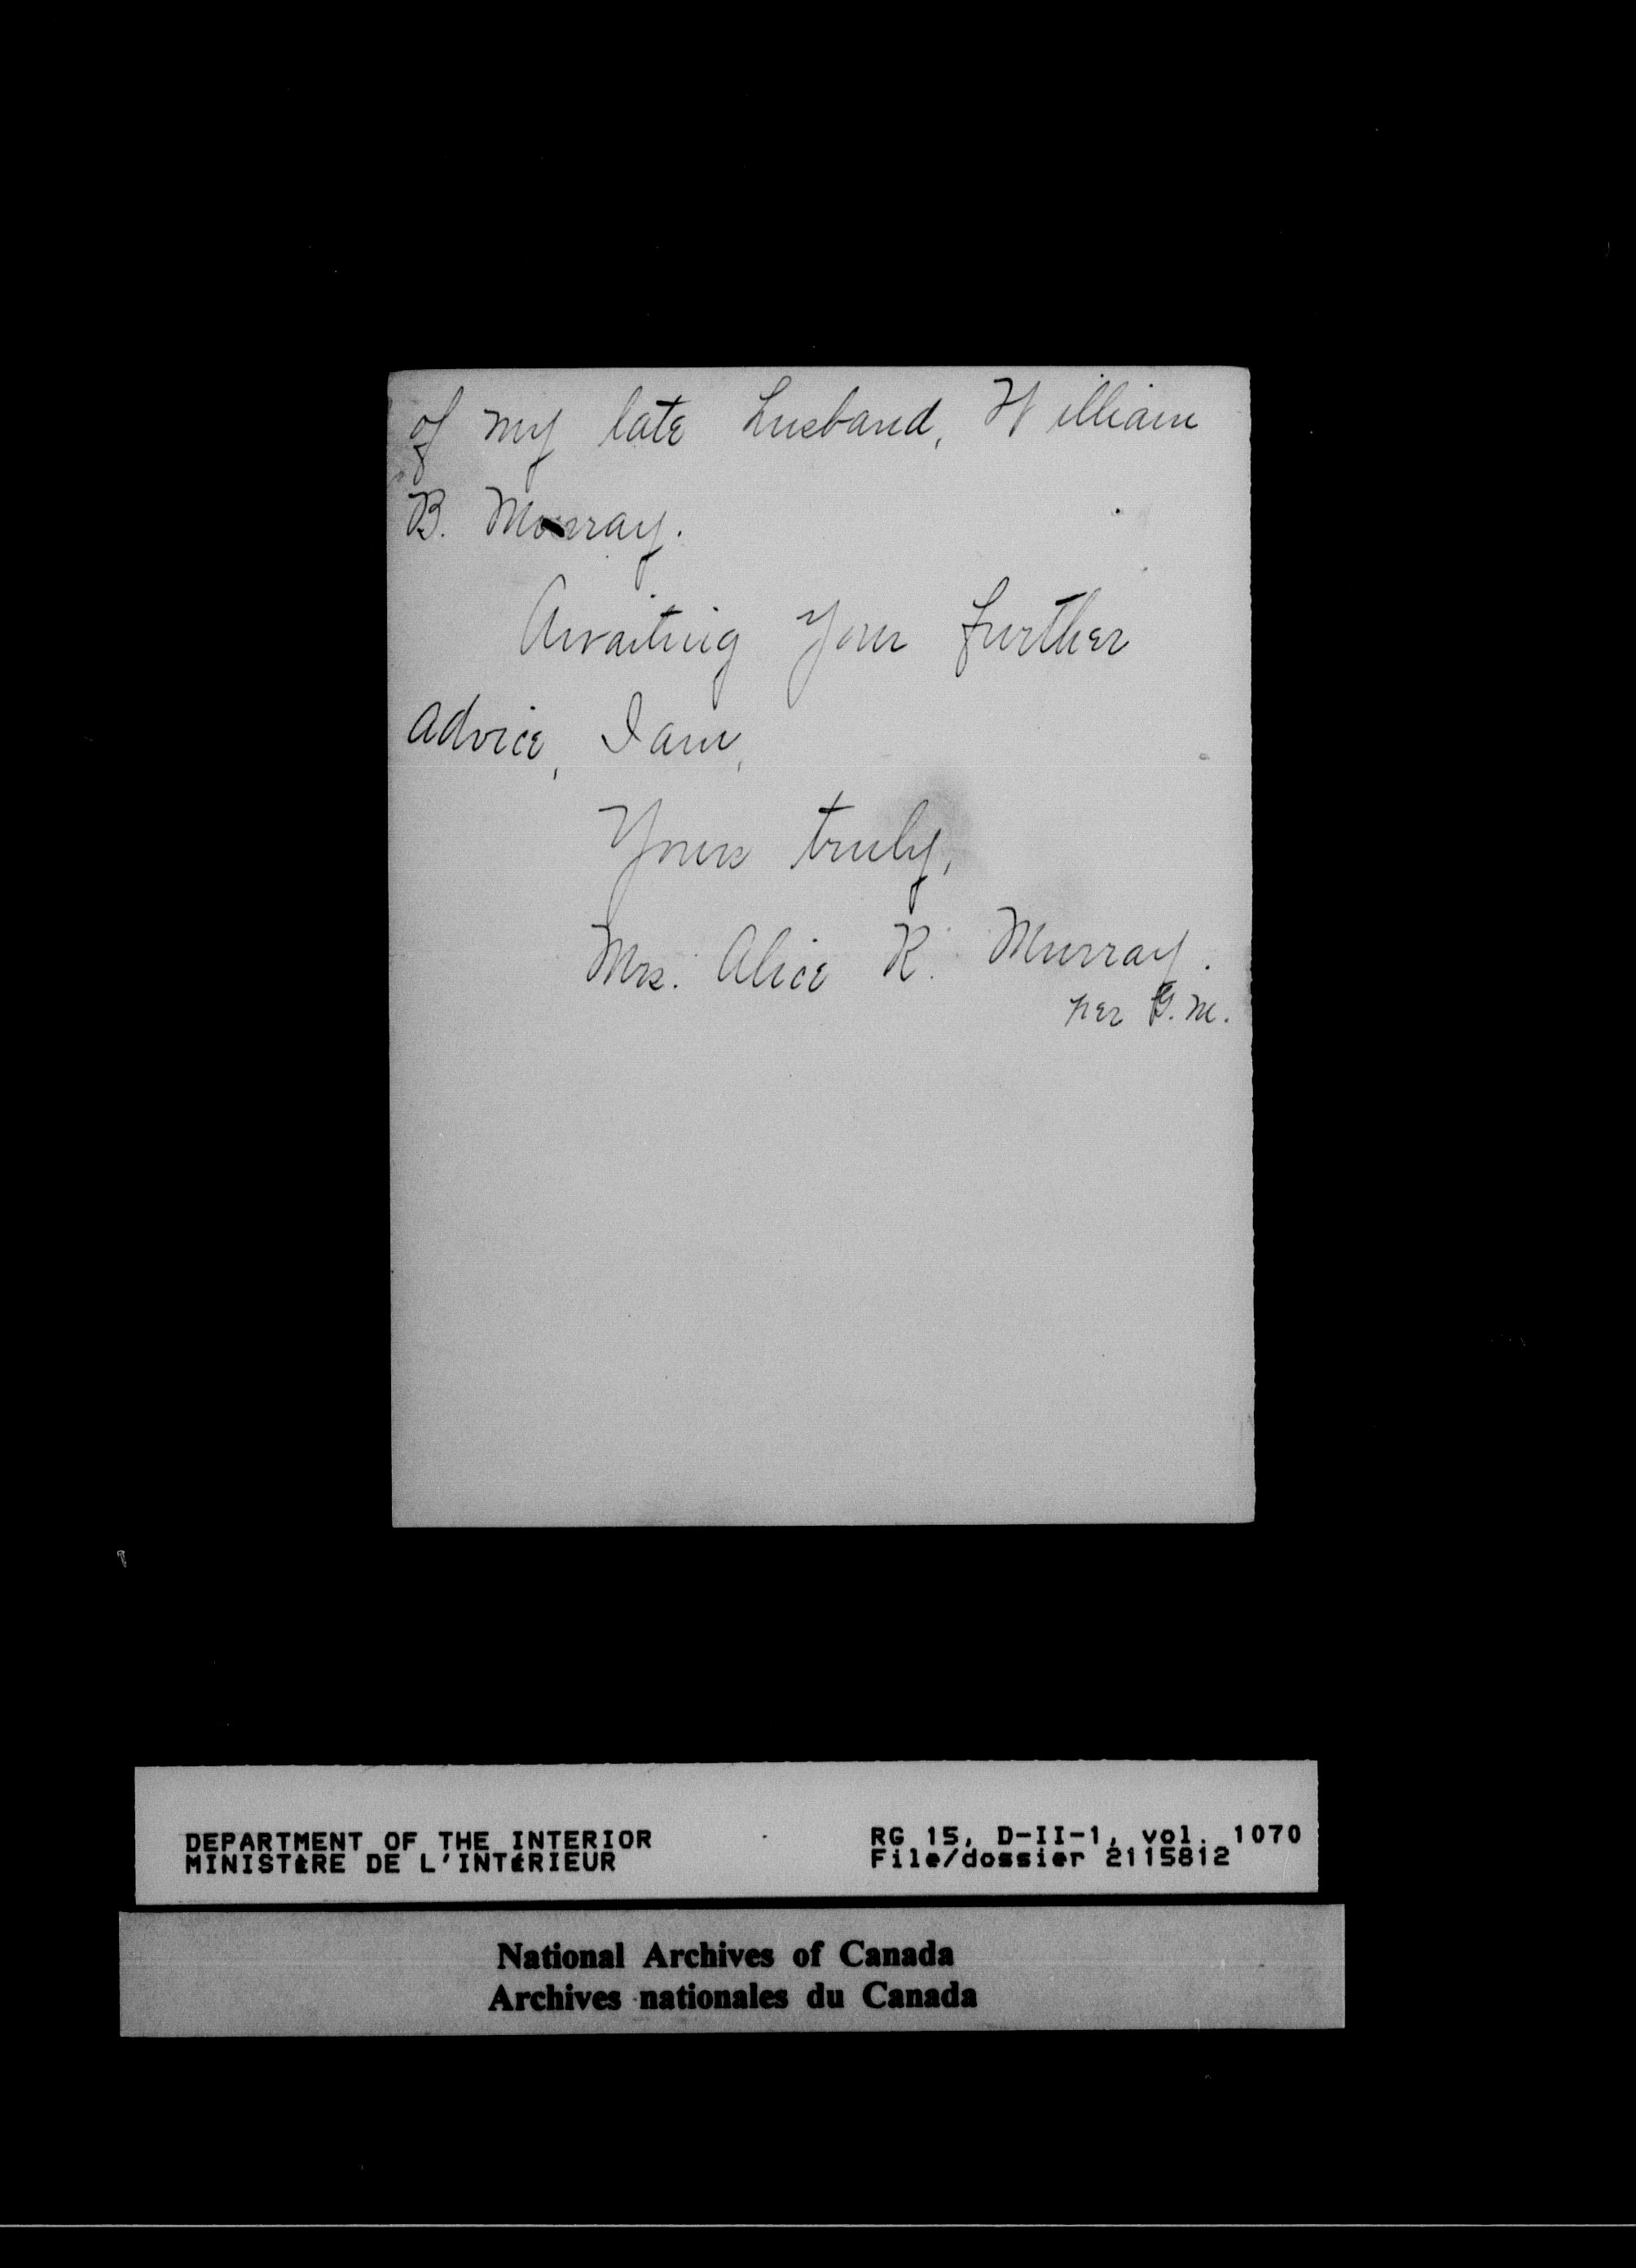 of my late husband, William
B. Murray.
Awaiting your further
advice, I am,
Yours truly,
Mrs. Alice R. Murray.
per G. M.
DEPARTMENT OF THE INTERIOR
MINISTÈRE DE L'INTÉRIEUR
RG 15, D-II-1, vol. 1070
File/dossier 2115812
National Archives of Canada
Archives nationales du Canada